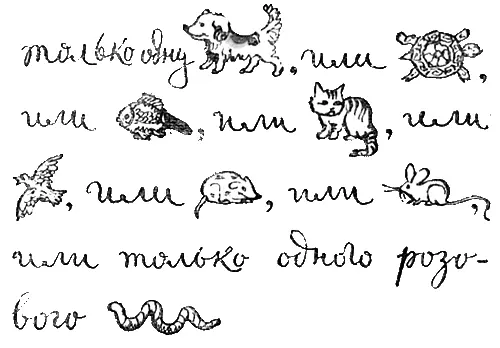 только одну , или ,
или , или , или
, или , или ,
или только одного розо-
вого